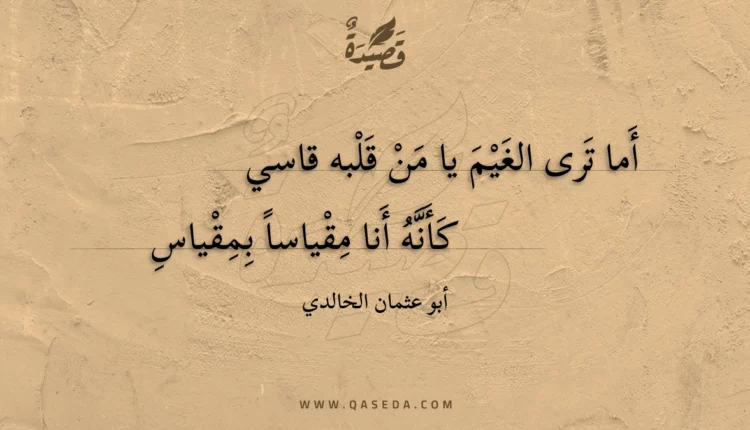 قَصِيدَةٌ
أَما تَرى الغَيْمَ يا مَنْ قَلْبه قاسي
كَأَنَّهُ أَنا مِقْياساً بِمِقْياسِ
أبو عثمان الخالدي
WWW.QASEDA.COM